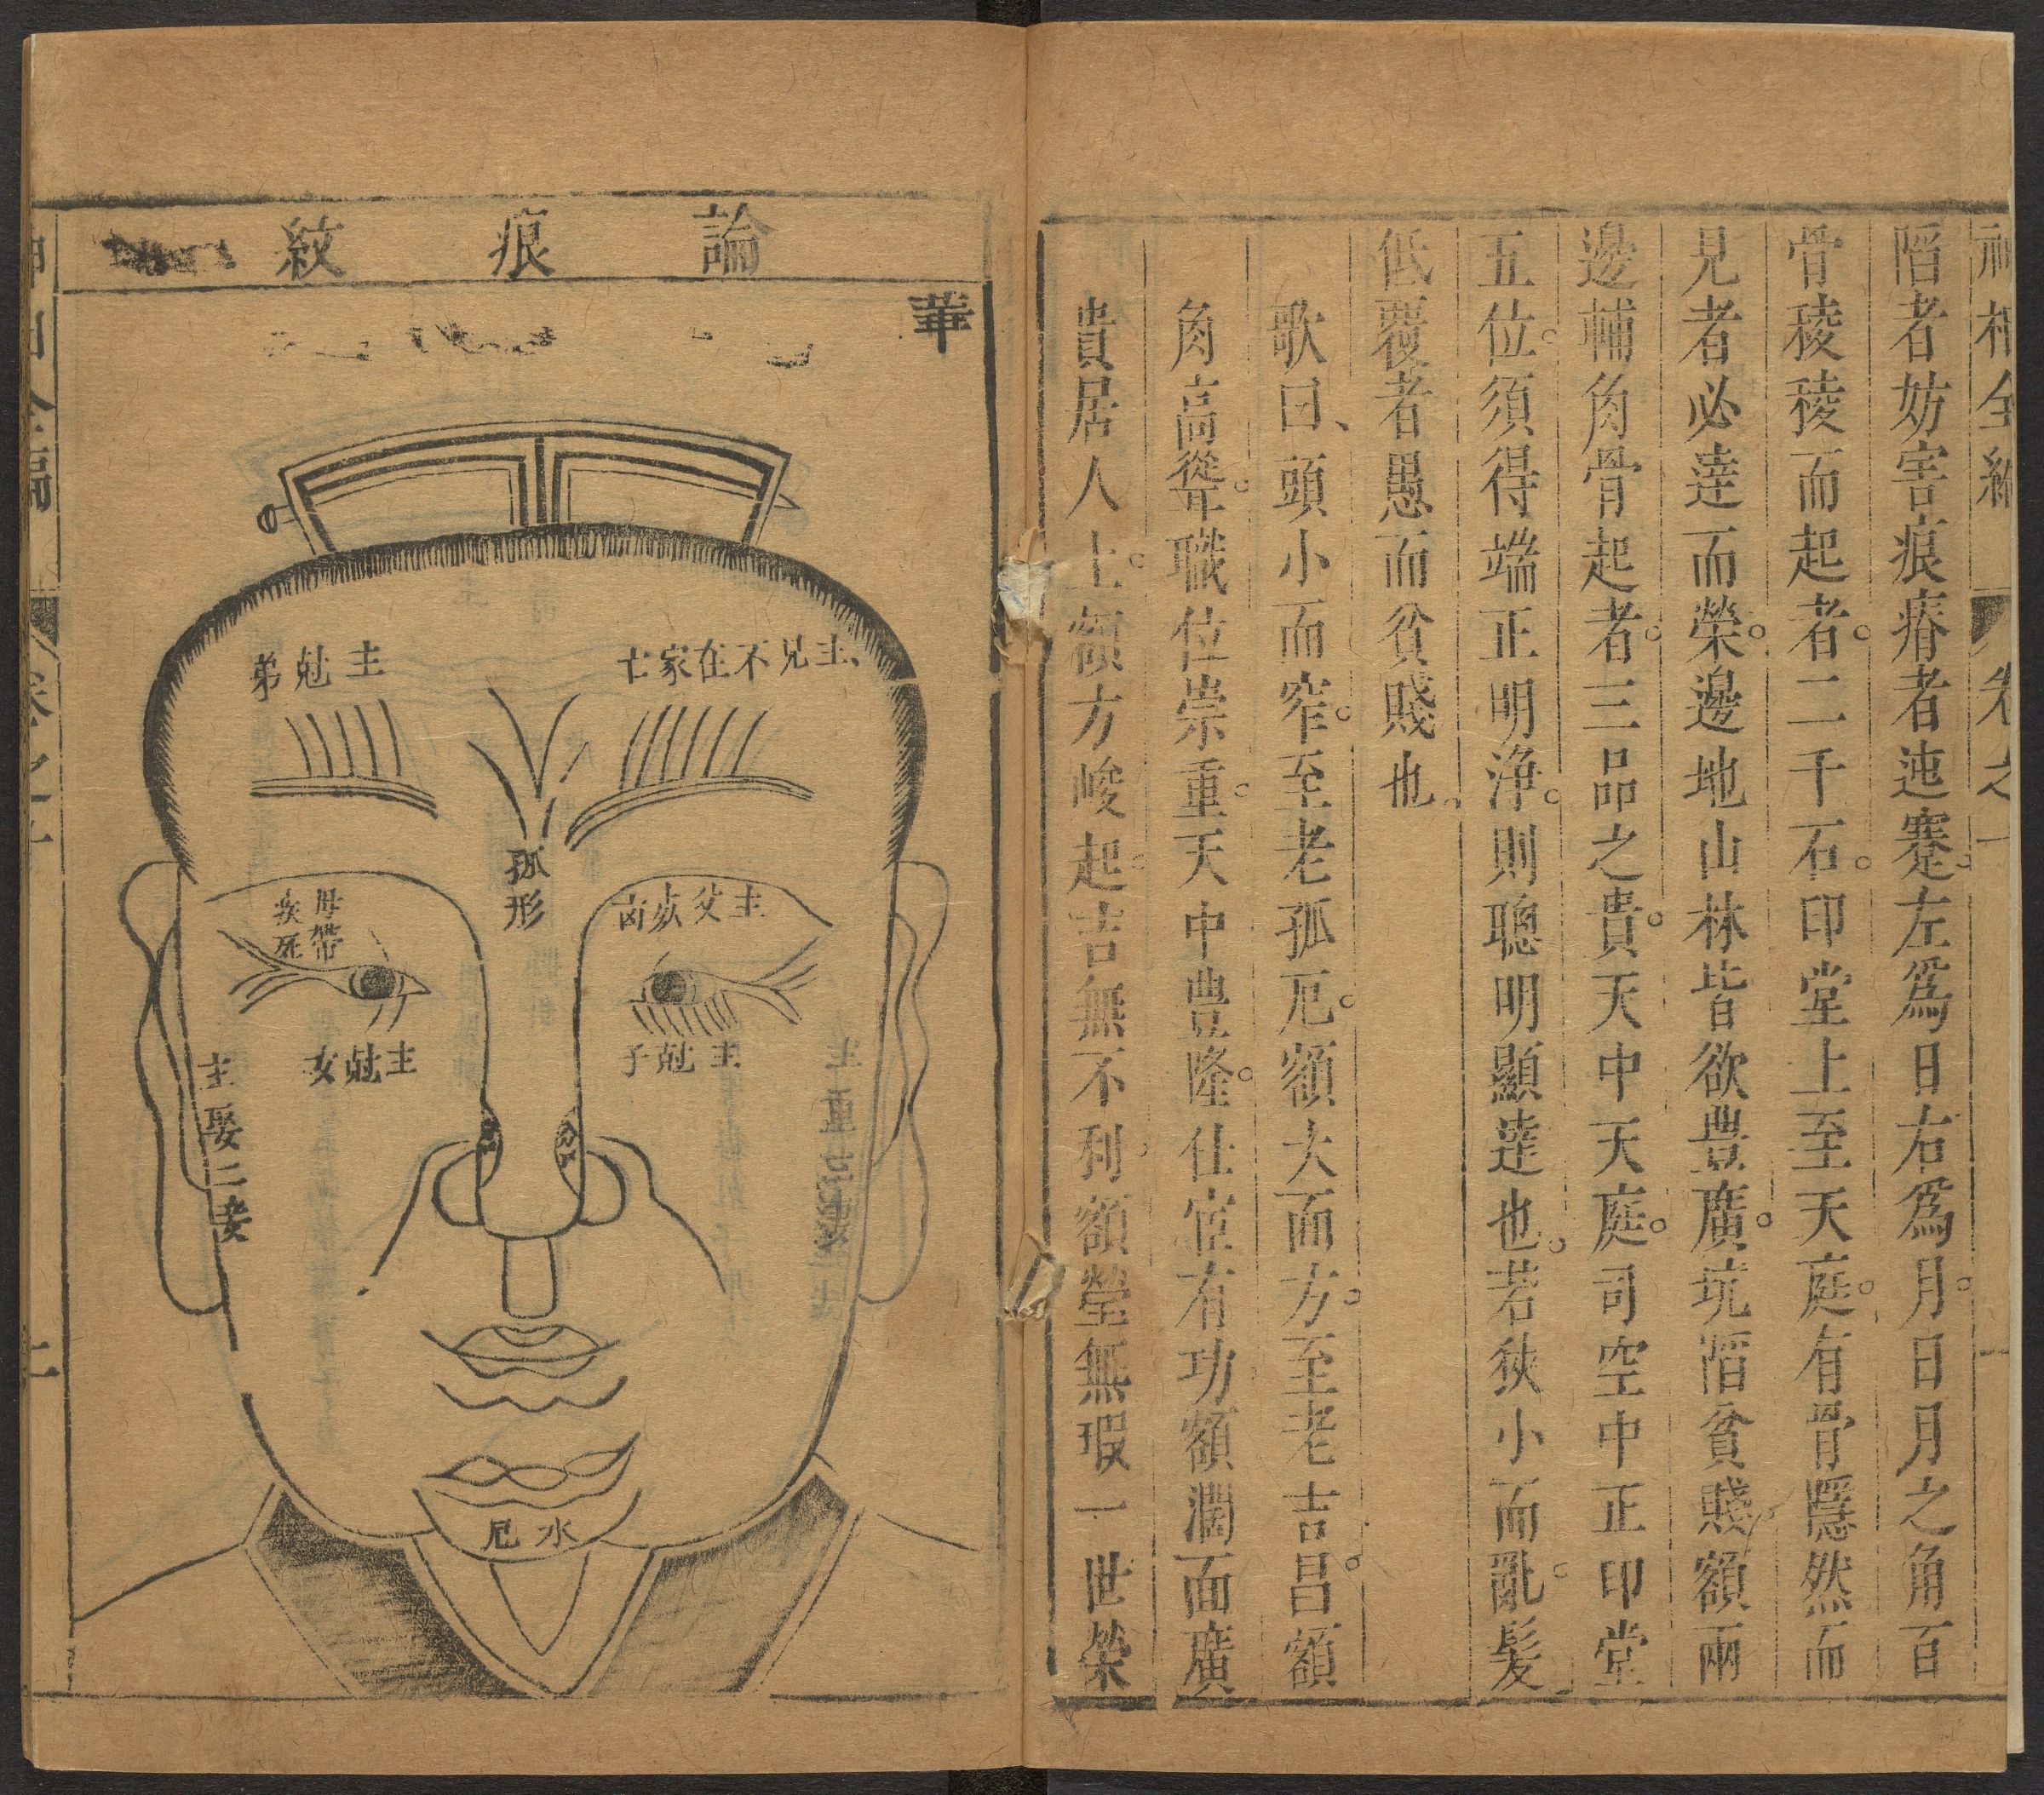 陷者妨害痕瘠者迍蹇。左爲日右爲月。日月之角百
骨稜稜而起者。二千石。印堂上至天庭。有骨隱然而
見者必達而榮。邊地山林皆欲豊廣。坑陷貧賤額兩
邊輔角骨起者。三品之貴。天中天庭。司空中正印堂
五位。須得端正明淨。則聰明顯達也。若狹小而亂髮
低覆者愚而貧賤也。
歌曰、頭小而窄。至老孤厄。額大而方。至老吉昌。額
角高聳。職位崇重。天中豊隆。仕宦有功額濶面廣
貴居人上。額方峻起。吉無不利。額瑩無瑕一世榮
華
論痕紋
主兄不在家亡
主尅弟
孤形
主父
母帶疾死
主尅子
主尅女
主娶二妻
水厄
卷之